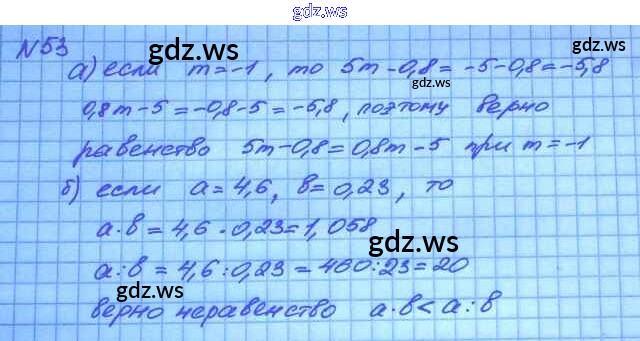 gdz.ws
N53
gdz.ws
а) если m = -1, то 5m - 0,8 = -5 - 0,8 = -5,8
gdz.ws
0,8m - 5 = -0,8 - 5 = -5,8, поэтому верно
равенство 5m - 0,8 = 0,8m - 5 при m = -1
gdz.ws
б) если a = 4,6, b = 0,23, то
a·b = 4,6 · 0,23 = 1,058
gdz.ws
a:b = 4,6 : 0,23 = 460:23 = 20
gdz.ws
верно неравенство a·b < a:b